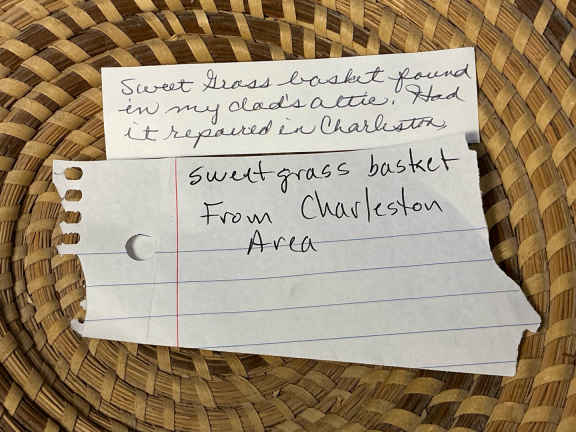 Sweet Grass basket found
in my dad's attic. Had
it repaired in Charleston,
sweetgrass basket
From Charleston
Area